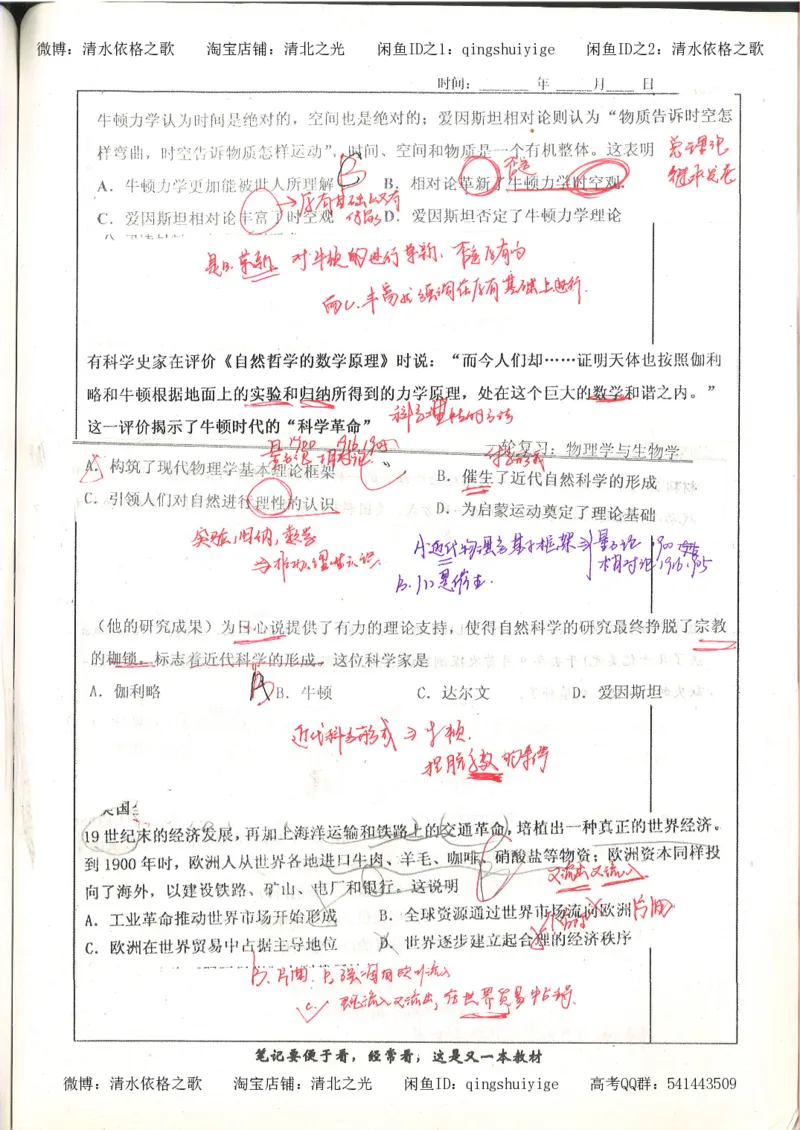 微博：清水依格之歌 淘宝店铺：清北之光 闲鱼ID之1：qingshuiyige 闲鱼ID之2：清水依格之歌
时间：______ 年 _____月____ 日
牛顿力学认为时间是绝对的，空间也是绝对的；爱因斯坦相对论则认为“物质告诉时空怎
样弯曲，时空告诉物质怎样运动”，时间、空间和物质是一个有机整体。这表明
A．牛顿力学更加能被世人所理解 B B．相对论革新了牛顿力学时空观 否定
继承发展
C．爱因斯坦相对论丰富了时空观 D．爱因斯坦否定了牛顿力学理论
是B.革新. 对牛顿的进行革新. 否定原有的
而C.丰富或强调在原有基础上进行.
有科学史家在评价《自然哲学的数学原理》时说：“而今人们却……证明天体也按照伽利
略和牛顿根据地面上的实验和归纳所得到的力学原理，处在这个巨大的数学和谐之内。”
这一评价揭示了牛顿时代的“科学革命”
一轮复习：物理学与生物学
A．构筑了现代物理学基本理论框架 B．催生了近代自然科学的形成
C．引领人们对自然进行理性的认识 D．为启蒙运动奠定了理论基础
实验,归纳,数学
（他的研究成果）为日心说提供了有力的理论支持，使得自然科学的研究最终挣脱了宗教
的枷锁，标志着近代科学的形成。这位科学家是
A．伽利略 B B．牛顿 C．达尔文 D．爱因斯坦
近代科学形成 ⇒ 牛顿.
摆脱宗教的条件
19世纪末的经济发展，再加上海洋运输和铁路上的交通革命，培植出一种真正的世界经济。
到1900年时，欧洲人从世界各地进口牛肉、羊毛、咖啡、硝酸盐等物资；欧洲资本同样投
向了海外，以建设铁路、矿山、电厂和银行。这说明
又流出又流入
A．工业革命推动世界市场开始形成 B．全球资源通过世界市场流向欧洲 片面
C．欧洲在世界贸易中占据主导地位 D．世界逐步建立起合理的经济秩序
笔记要便于看，经常看，这是又一本教材
微博：清水依格之歌 淘宝店铺：清北之光 闲鱼ID：qingshuiyige 高考QQ群：541443509